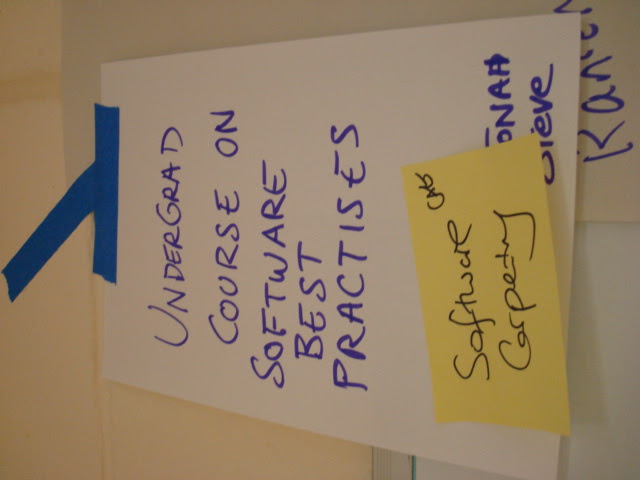 UNDERGRAD
COURSE ON
SOFTWARE
BEST
PRACTISES
Software
Carpentry
Steve